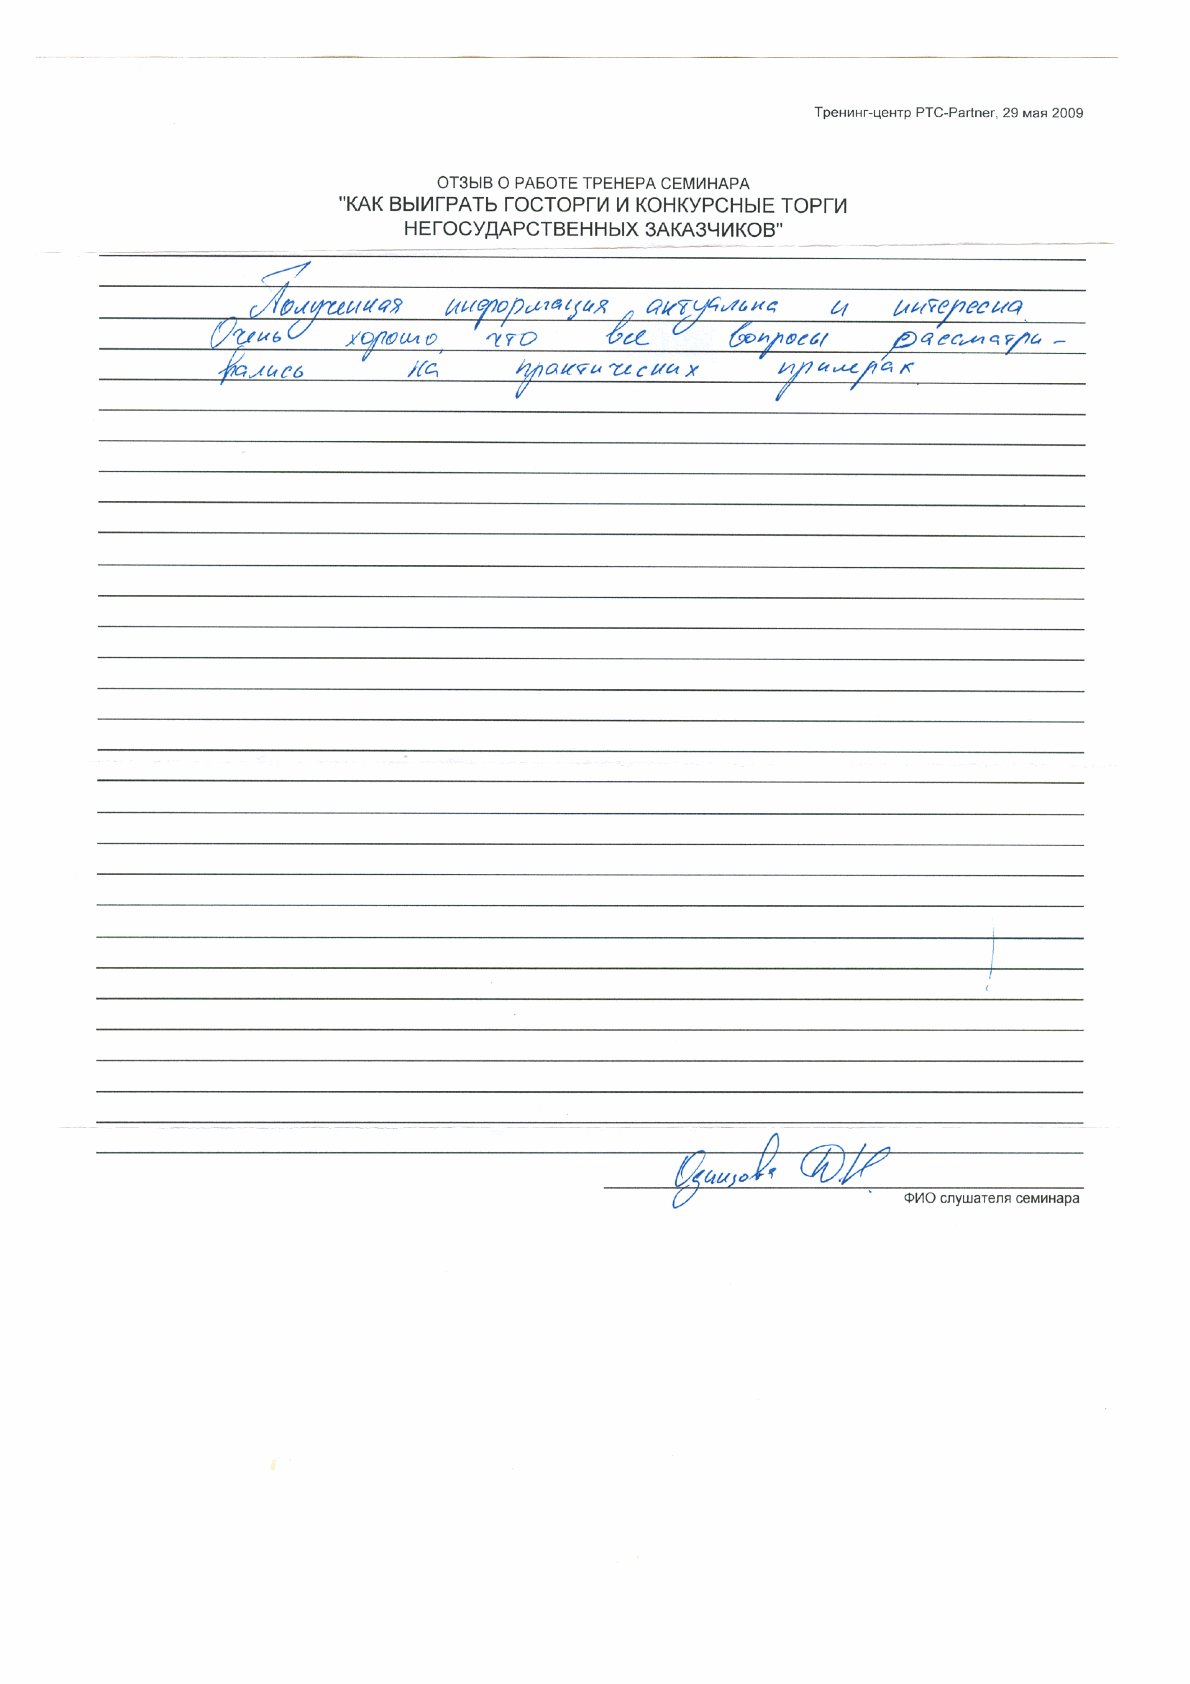 Тренинг-центр РТС-Partner, 29 мая 2009
ОТЗЫВ О РАБОТЕ ТРЕНЕРА СЕМИНАРА
"КАК ВЫИГРАТЬ ГОСТОРГИ И КОНКУРСНЫЕ ТОРГИ
НЕГОСУДАРСТВЕННЫХ ЗАКАЗЧИКОВ"
Полученная информация актуальна и интересна
Очень хорошо, что все вопросы рассматри-
вались на практических примерах
Одинцова Ю.Н.
ФИО слушателя семинара